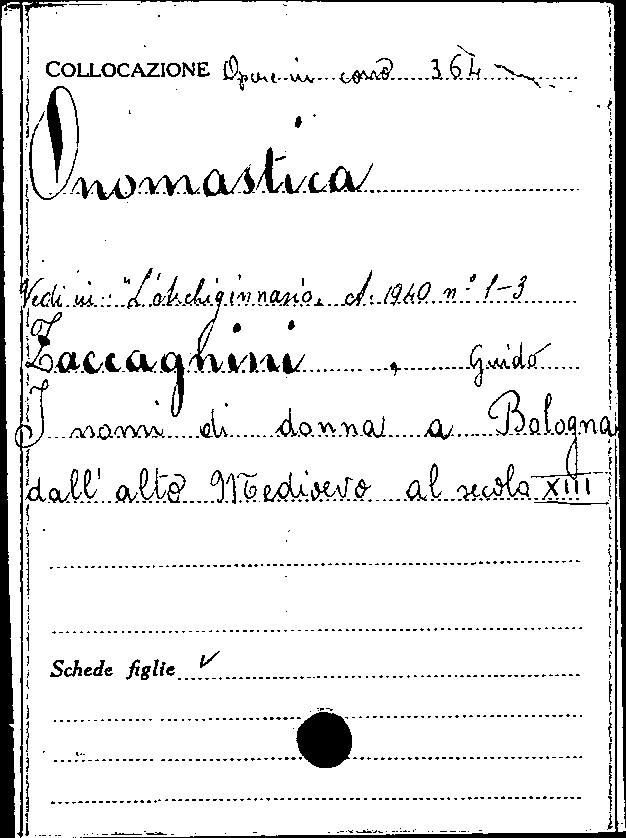 COLLOCAZIONE Opere in corso 364
Onomastica
Vedi in: "L'Archiginnasio. A. 1940 n° 1-3
Zaccagnini, Guido
I nomi di donna a Bologna
dall'alto Medioevo al secolo XIII
Schede figlie ✓